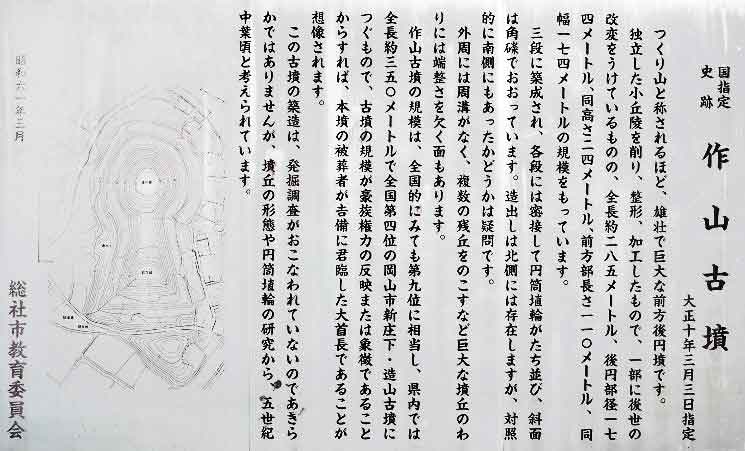 国指定
史跡
作山古墳
大正十年三月三日指定
つくり山と称されるほど、雄壮で巨大な前方後円墳です。
独立した小丘陵を削り、整形、加工したもので、一部に後世の
改変をうけているものの、全長約二八五メートル、後円部径一七
四メートル、同高さ二四メートル、前方部長さ一一〇メートル、同
幅一七四メートルの規模をもっています。
三段に築成され、各段には密接して円筒埴輪がたち並び、斜面
は角礫でおおっています。造出しは北側には存在しますが、対照
的に南側にもあったかどうかは疑問です。
外周には周溝がなく、複数の残丘をのこすなど巨大な墳丘のわ
りには端整さを欠く面もあります。
作山古墳の規模は、全国的にみても第九位に相当し、県内では
全長約三五〇メートルで全国第四位の岡山市新庄下・造山古墳に
つぐもので、古墳の規模が豪族権力の反映または象徴であること
からすれば、本墳の被葬者が吉備に君臨した大首長であることが
想像されます。
この古墳の築造は、発掘調査がおこなわれていないのであきら
かではありませんが、墳丘の形態や円筒埴輪の研究から、五世紀
中葉頃と考えられています。
昭和六一年三月
総社市教育委員会